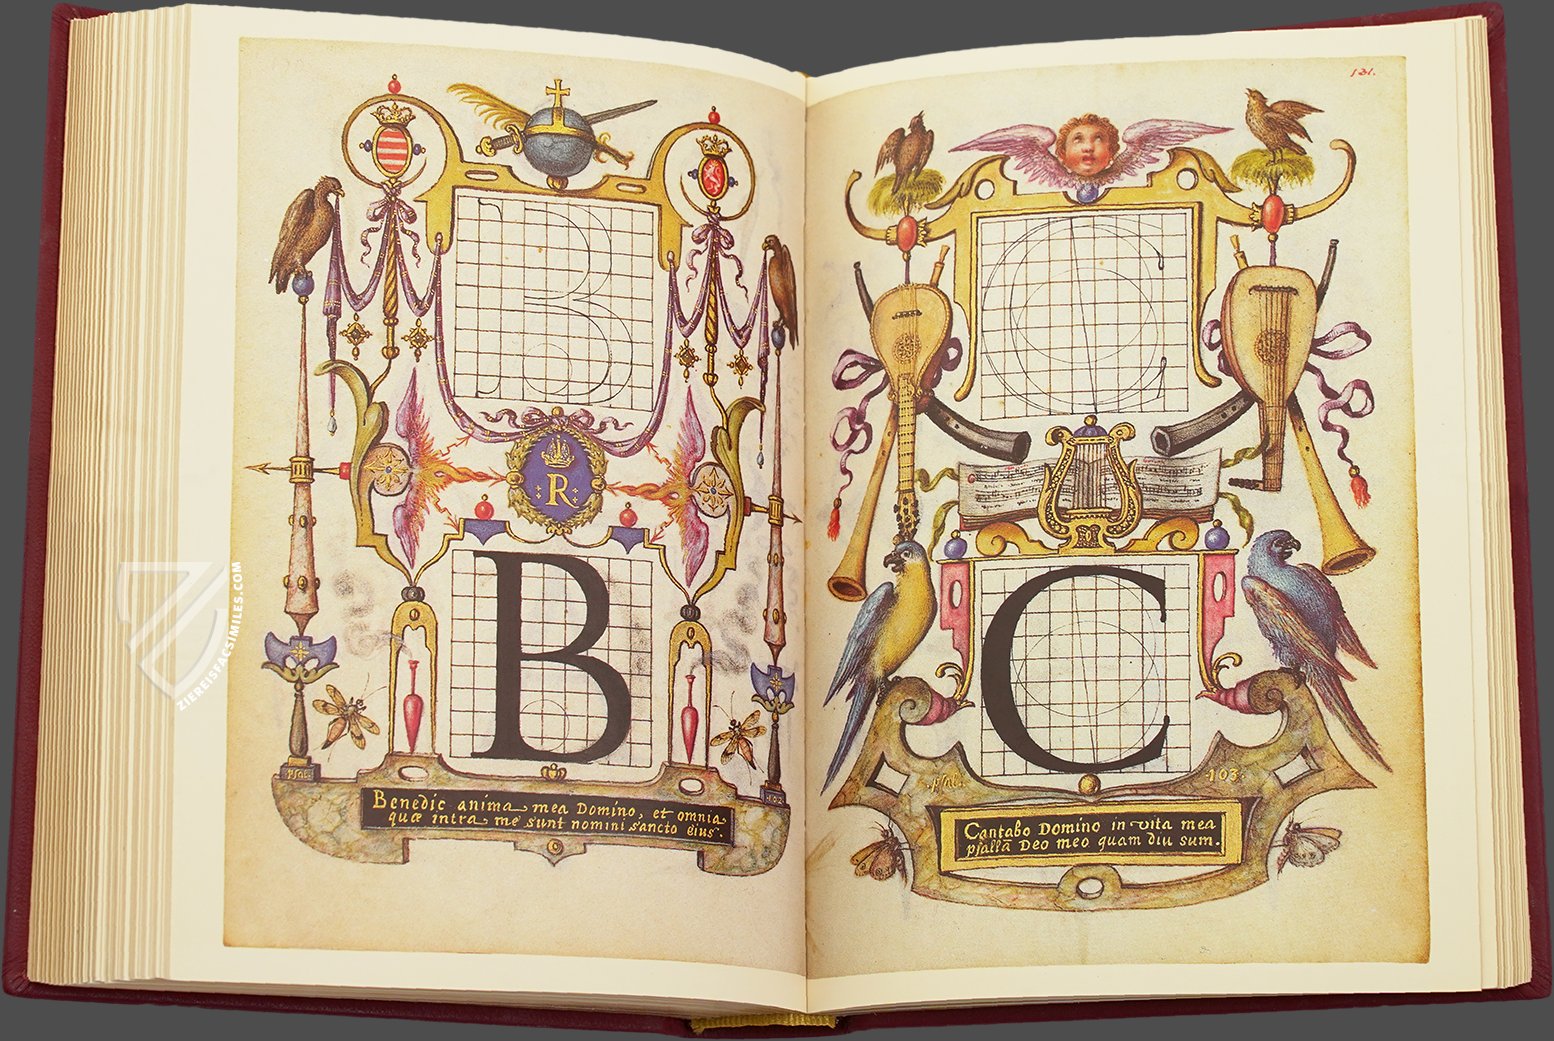 R
B
psal.
102
Benedic anima mea Domino, et omnia
quæ intra me sunt nomini sancto eius.
131.
C
psal.
103.
Cantabo Domino in vita mea
psallā Deo meo quam diu sum.
ZIEREISFACSIMILES.COM